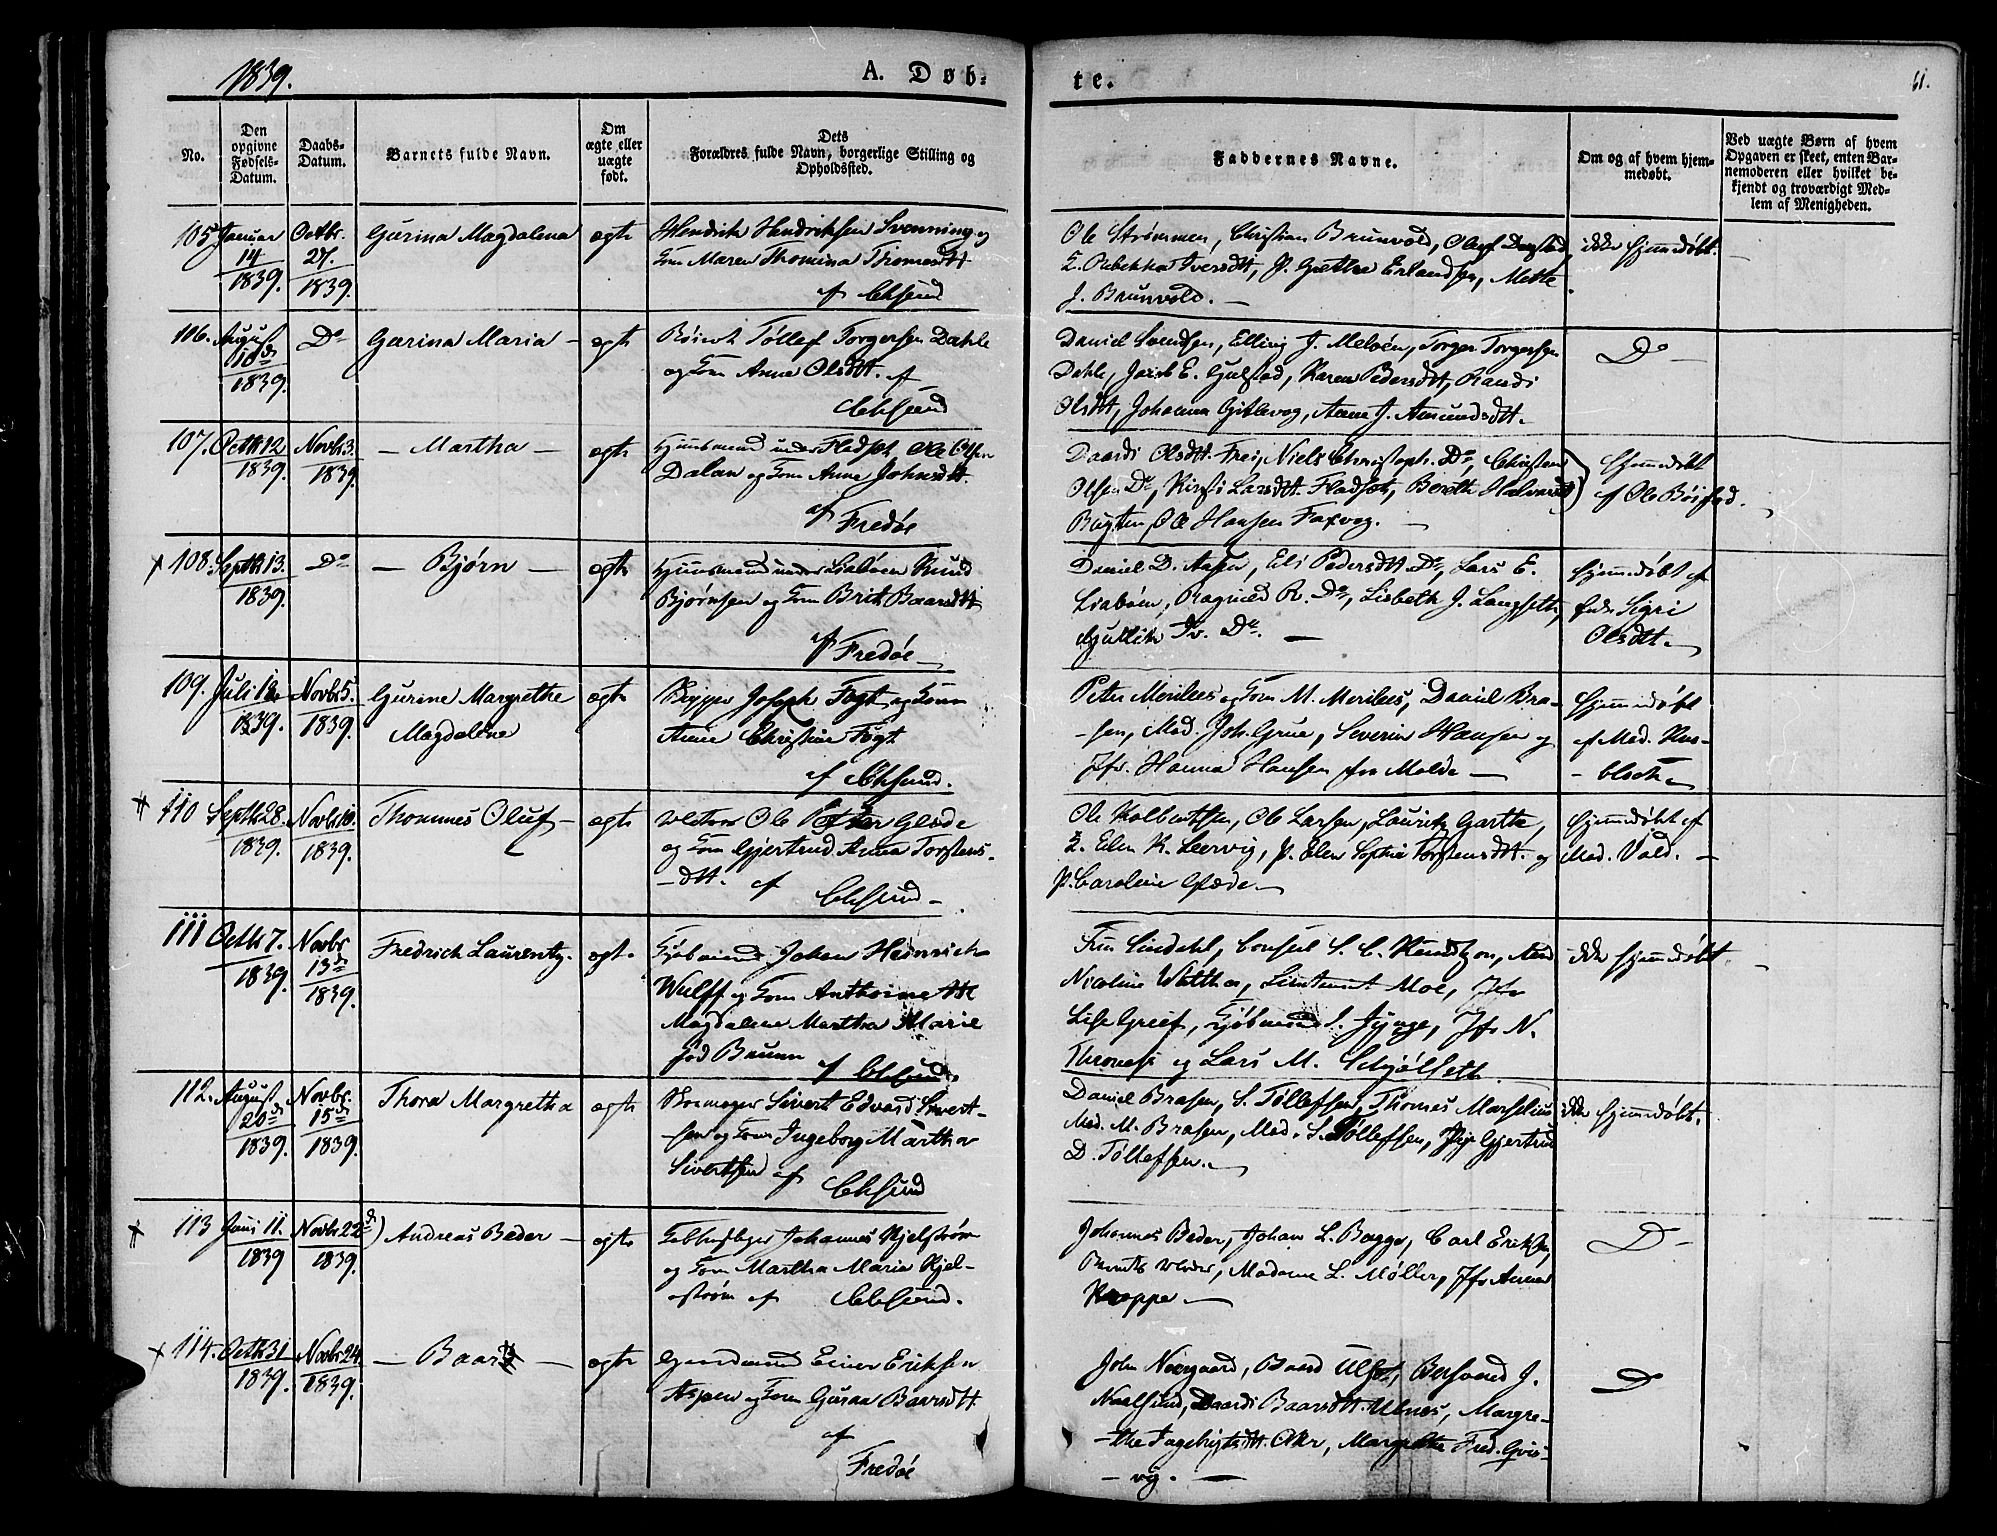 1839.
A. Døb-
te.
61.
No.
Den opgivne Fødsels-Datum.
Daabs-Datum.
Barnets fulde Navn.
Om ægte eller uægte født.
Dets Forældres fulde Navn, borgerlige Stilling og Opholdssted.
Faddernes Navne.
Om og af hvem hjemmedøbt.
Ved uægte Børn af hvem Opgaven er skeet, enten Barnemoderen eller hvilket bekjendt og troværdigt Medlem af Menigheden.
105 Januar 14 1839. Octbr. 27. 1839. Gurina Magdalena ægte
Hendrik Hendriksen Svenning og
Kone Maren Thomina Thomesdtt
af Chsund
Ole Strømmen, Christian Brunvold, Oluf
E. Rebekka Iversdtt, P. Grethe Erlandsen, Mette
J. Brunvold. —
ikke hjemmedøbt.
106. August 18de 1839. Do Gurina Maria — ægte
Tøllef Torgersen Dahle
og Kone Anne Olsdtt. af
Chsund
Daniel Svendsen, Elling J. Meløen, Torger Torgersen
Dahle, Jacob E. Gulstad, Karen Pedersdtt, Randi
Olsdtt, Johanna Gislevog, Anne J. Amundsdtt.
Do —
107. Octbr 12 1839. Novbr 3. 1839. — Martha — ægte
Huusmand under Fladset, Ole Olsen
Dalan og Kone Anne Johnsdtt.
af Fredøe
Baardi Olsdtt. Frei, Niels Christoph. Do, Christen
Olsen Do, Kirsti Larsdtt. Fladset, Bereth Halvorsdtt
Bugten, Ole Hansen Faxvog. —
hjemmedøbt
af Ole Bøifod.
108. Septbr 13. 1839. Do — Bjørn — ægte
Huusmand under Liabøen Knud
Bjørnsen og Kone Brit Baarsdtt
af Fredøe
Daniel D. Aasen, Eli Pedersdtt Do, Lars E.
Liabøen, Ragnild R. Do, Lisbeth J. Langseth,
Gullik Iv. Do. —
hjemmedøbt af
Sigri
Olsdtt.
109. Juli 12 1839. Novbr 5. 1839. Gurine Margrethe
Magdalene ægte
Skipper Joseph Fogt og Kone
Anne Christine Fogt
af Chsund.
Peter Merilees og Kone M. Merilees, Daniel Bra-
sen, Mad. Joh. Grue, Severin Hansen og
Jfr. Hanna Hansen fra Molde —
hjemmedøbt
af Mad. Kus-
110 Septbr 28. 1839. Novbr 10. 1839. Thomnes Oluf — ægte
Ole Peter Gløde
og Kone Gjertrud Anna Torstens-
dtt. af Chsund —
Ole Kolbentsen, Ole Larsen, Lauritz Garthe,
E. Elen K. Leervig, P. Elen Sophie Torstensdtt. og
P. Caroline Gløde. —
hjemmedøbt af
Mad. Vold. —
111 Octbr 7. 1839. Novbr. 13de 1839. Fredrich Laurentz. ægte
Kjøbmand Johan Heinrich
Wulff og Kone Anthoine
Magdalene Martha Marie
fød Bruun af Chsund.
Fru Lindahl, Consul Knudtzon,
Nicoline Walther, Lieutenant Moe, Jfr
Lise Greef, Kjøbmand Jynge, Jfr N.
og Lars M. Schjølseth.
ikke hjemmedøbt. —
112. August 20de 1839. Novbr. 15de 1839. Thora Margretha ægte
Skomager Sivert Edvard Sivert-
sen og Kone Ingeborg Martha
Sivertsen af Chsund
Daniel Brasen, S. Tøllefsen, Thomes Marselius,
Mad. M. Brasen, Mad. S. Tøllefsen, Pige Gjertrud
D. Tøllefsen. —
ikke hjemmedøbt.
113 Juni 11. 1839 Novbr 22de 1839. Andreas Beder — ægte
Johannes Kjelstrøm
og Kone Martha Maria Kjel-
strøm af Chsund.
Johannes Beder, Johan L. Bagge, Carl Eriksen,
Madame L. Møller, Jfr Anne
Kroppe —
Do —
114. Octbr 31 1839. Novbr 24 1839. — Baar — ægte
Gaardmand Einer Eriksen
Aspen og Kone Guruna Baarsdtt
af
Fredøe
John Norgaard, Baard Ulset, Bersvend J.
Naalsund, Baardi Baarsdtt. Ulnes, Margre-
the Ingebrigtsdtt. Aker, Margrethe Fred. Qvis-
vig. —
Do